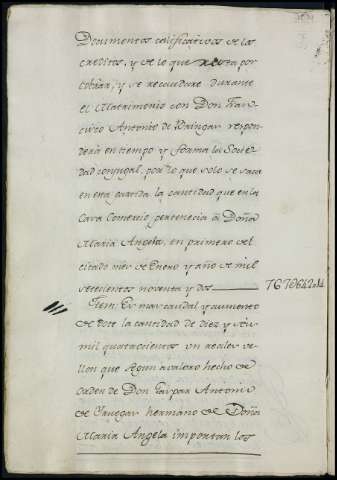 Documentos calificativos de los
creditos, y de lo que resta por
cobrar, y se recaudare durante
el Matrimonio con Don Fran-
cisco Antonio de Bringas respon-
derà en tiempo y forma la Socie-
dad conyugal, por lo que solo se saca
en esta partida la cantidad que en la
Casa Comercio pertenecia à Doña
Maria Angela, en primero del
citado mes de Enero y año de mil
setecientos noventa y dos
Item: Es mas caudal y aumento
de Dote la cantidad de diez y seis
mil quatrocientos un reales ve-
llon que segun avaluo hecho de
orden de Don Gaspar Antonio
de hermano de Doña
Maria Angela importan los